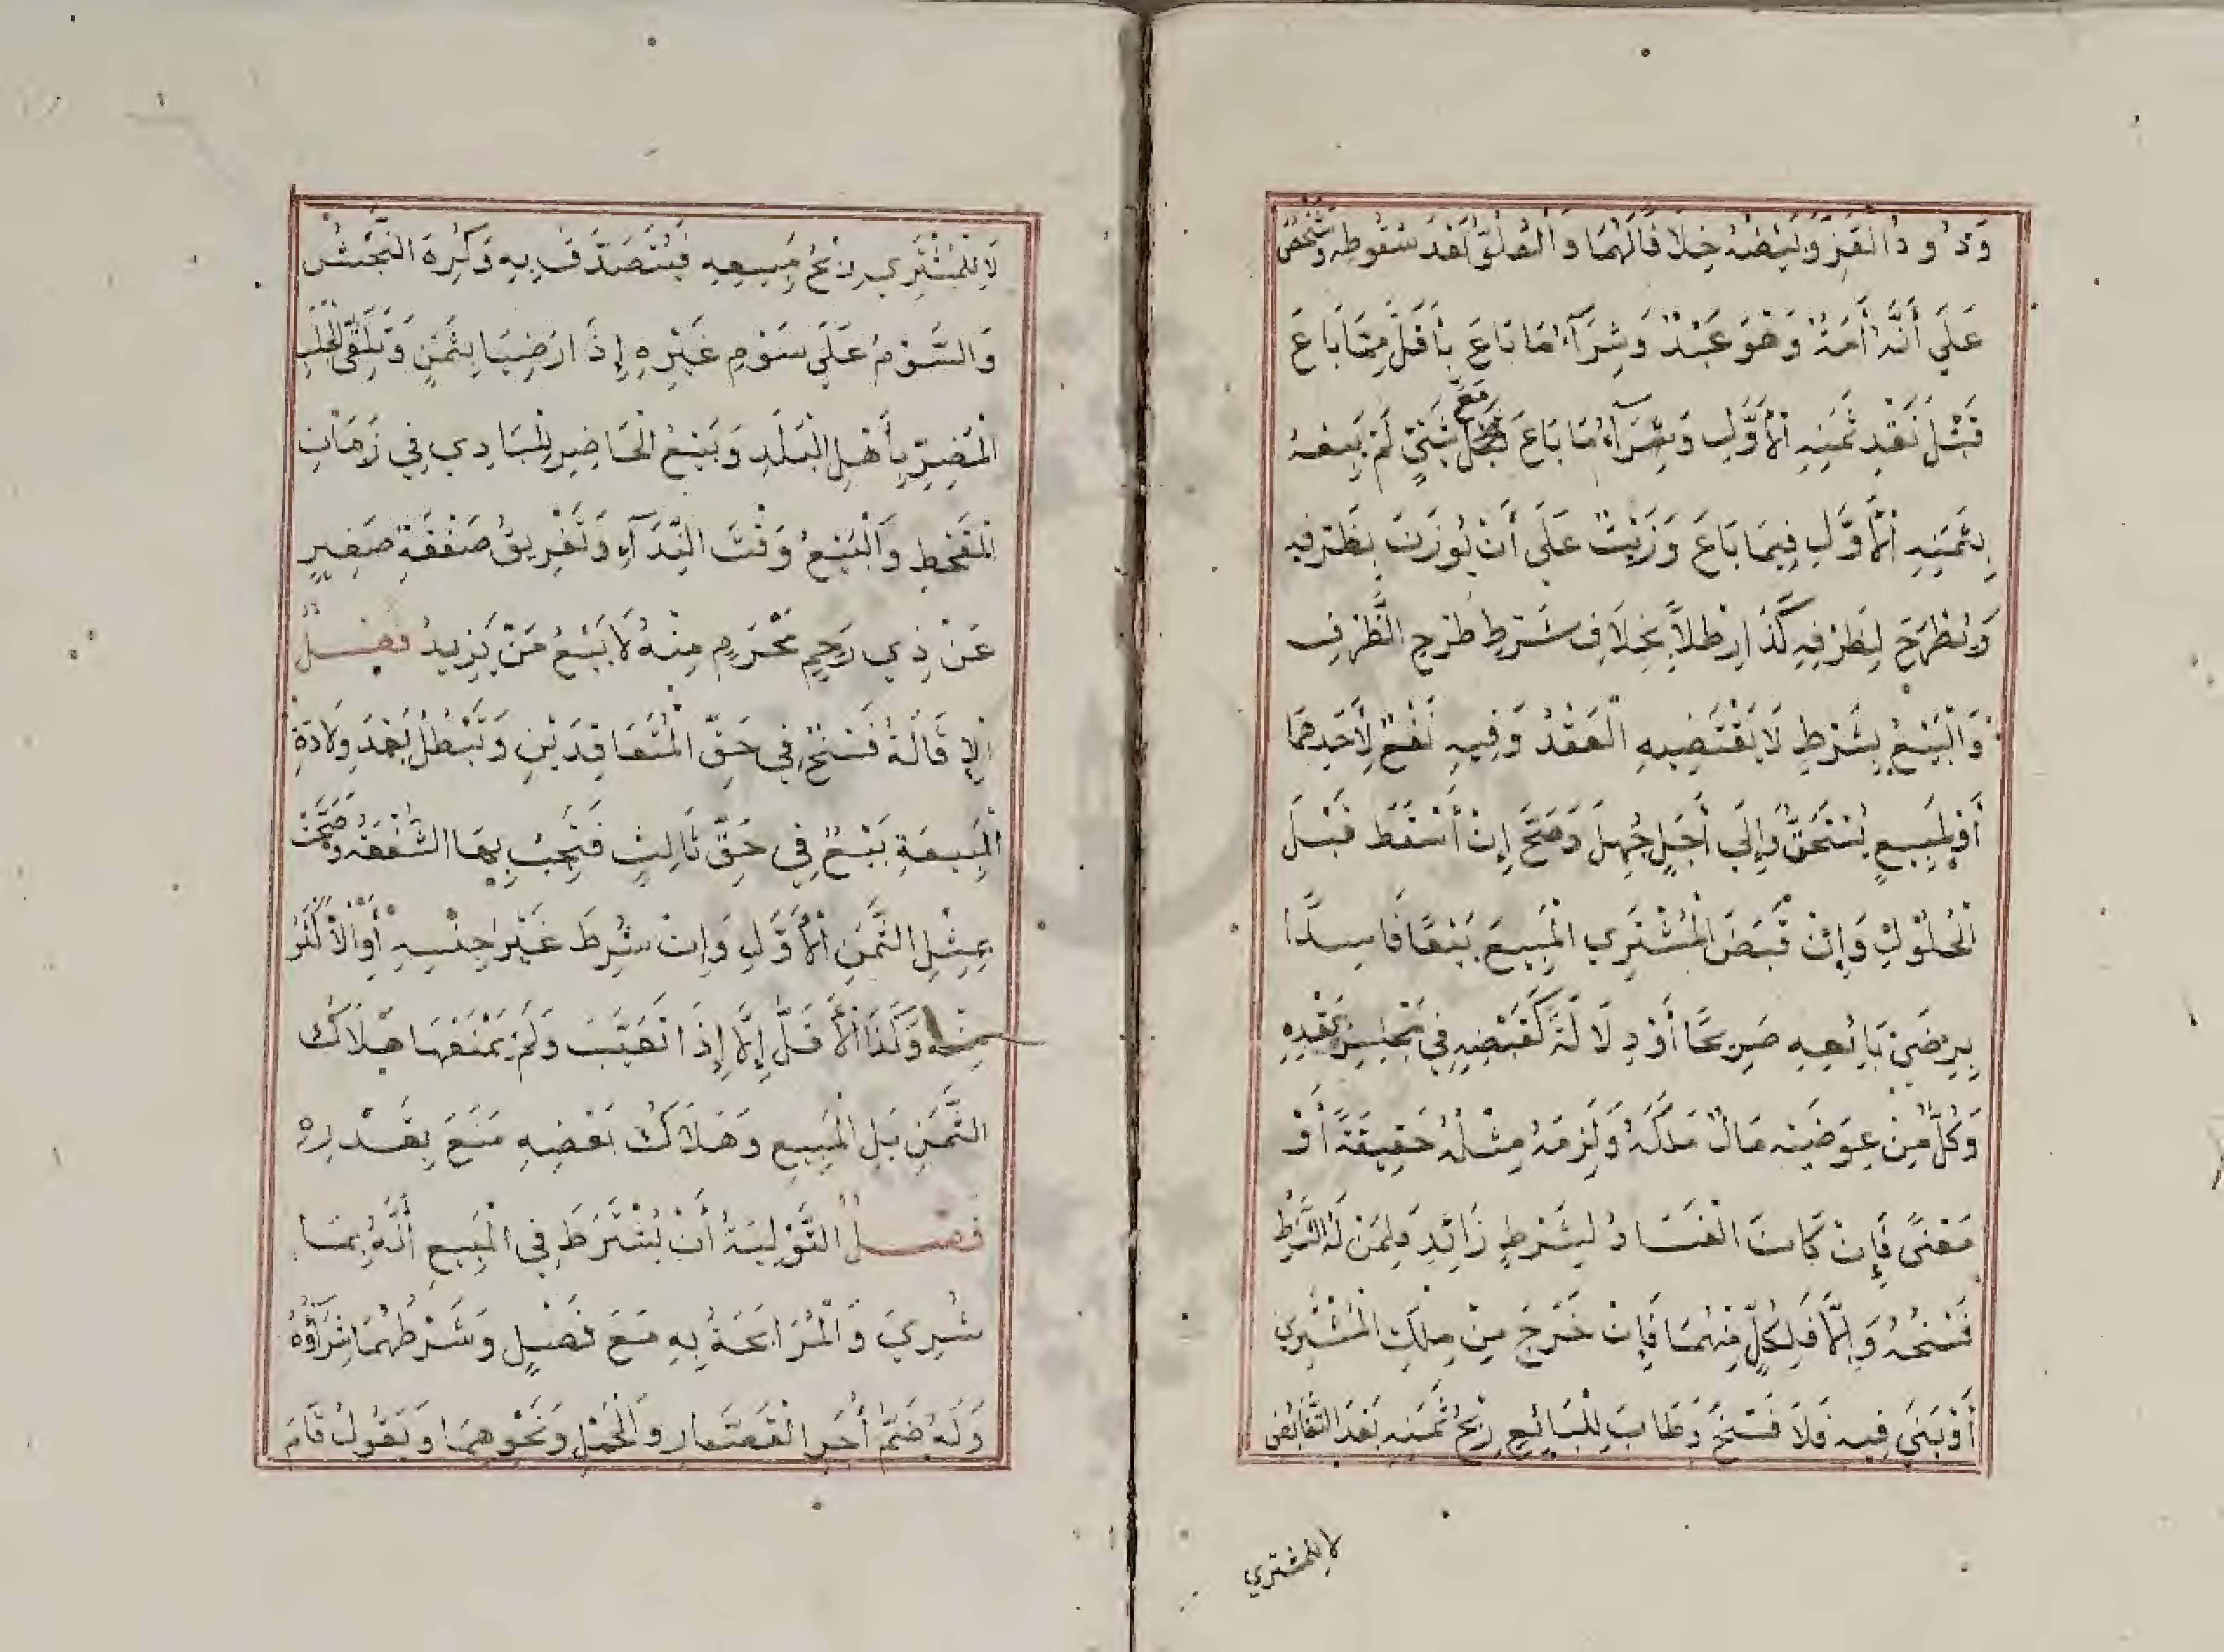 وَدُودُ الْقَزِّ وَبَيْضُهُ خِلَافًا لَهُمَا وَالْعُلُوِّ بَعْدَ سُقُوطِهِ وَشَخْصٍ
عَلَى أَنَّهُ أَمَةٌ وَهُوَ عَبْدٌ وَشِرَآءُ مَا بَاعَ بِأَقَلَّ مِمَّا بَاعَ
قَبْلَ نَقْدِ ثَمَنِهِ الْأَوَّلِ وَشِرَآءُ مَا بَاعَ مَعَ شَيْءٍ لَمْ يَبِعْهُ
بِثَمَنِهِ الْأَوَّلِ فِيمَا بَاعَ وَزَيْتٌ عَلَى أَنْ يُوزَنَ بِظَرْفِهِ
وَيُطْرَحَ لِظَرْفِهِ كَذَا رِطْلًا بِخِلَافِ شَرْطِ طَرْحِ الظَّرْفِ
وَالْبَيْعُ بِشَرْطٍ لَا يَقْتَضِيهِ الْعَقْدُ وَفِيهِ نَفْعٌ لِأَحَدِهِمَا
أَوْ لِمَبِيعٍ يُسْتَحَقُّ وَإِلَى أَجَلٍ جُهِلَ وَصَحَّ إِنْ أَسْقَطَ قَبْلَ
الْحُلُولِ وَإِنْ قَبَضَ الْمُشْتَرِي الْمَبِيعَ بَيْعًا فَاسِدًا
بِرِضَى بَائِعِهِ صَرِيحًا أَوْ دِلَالَةً كَقَبْضِهِ فِي مَجْلِسِ عَقْدِهِ
وَكُلٌّ مِنْ عِوَضَيْهِ مَالٌ مَلَكَهُ وَلَزِمَهُ مِثْلُهُ حَقِيقَةً أَوْ
مَعْنًى فَإِنْ كَانَ الْفَسَادُ لِشَرْطٍ زَائِدٍ فَلِمَنْ لَهُ الشَّرْطُ
فَسْخُهُ وَإِلَّا فَلِكُلٍّ مِنْهُمَا فَإِنْ خَرَجَ مِنْ مِلْكِ الْمُشْتَرِي
أَوْ بَنَى فِيهِ فَلَا فَسْخَ وَطَابَ لِلْبَائِعِ رِبْحُ ثَمَنِهِ بَعْدَ التَّقَابُضِ
لا للمشتري
لَا لِلْمُشْتَرِي رِبْحُ مَبِيعِهِ فَيَتَصَدَّقُ بِهِ وَكُرِهَ النَّجَشُ
وَالسَّوْمُ عَلَى سَوْمِ غَيْرِهِ إِذَا رَضِيَا بِثَمَنٍ وَتَلَقِّي الْجَلَبِ
الْمُضِرِّ بِأَهْلِ الْبَلَدِ وَبَيْعُ الْحَاضِرِ لِلْبَادِي فِي زَمَانِ
الْقَحْطِ وَالْبَيْعُ وَقْتَ النِّدَآءِ وَتَفْرِيقُ صَفْقَةِ صَغِيرٍ
عَنْ ذِي رَحِمٍ مَحْرَمٍ مِنْهُ لَا بَيْعُ مَنْ يَزِيدُ فَصْلٌ
الْإِقَالَةُ فَسْخٌ فِي حَقِّ الْمُتَعَاقِدَيْنِ وَتَبْطُلُ بَعْدَ وِلَادَةِ
الْمَبِيعَةِ بَيْعٌ فِي حَقِّ ثَالِثٍ فَتَجِبُ بِهَا الشُّفْعَةُ وَصَحَّتْ
بِمِثْلِ الثَّمَنِ الْأَوَّلِ وَإِنْ شُرِطَ غَيْرُ جِنْسِهِ أَوِ الْأَكْثَرُ
مِنْهُ وَكَذَا الْأَقَلُّ إِلَّا إِذَا تَعَيَّبَ وَلَمْ يَمْنَعْهَا هَلَاكُ
الثَّمَنِ بَلِ الْمَبِيعِ وَهَلَاكُ بَعْضِهِ مَنَعَ بِقَدْرِهِ
فَصْلٌ التَّوْلِيَةُ أَنْ يُشْتَرَطَ فِي الْمَبِيعِ أَنَّهُ بِمَا
شُرِيَ وَالْمُرَابَحَةُ بِهِ مَعَ فَضْلٍ وَشَرْطُهُمَا شِرَاؤُهُ
وَلَهُ ضَمُّ أَجْرِ الْقَصَّارِ وَالْحَمْلِ وَنَحْوِهِمَا وَيَقُولُ قَامَ